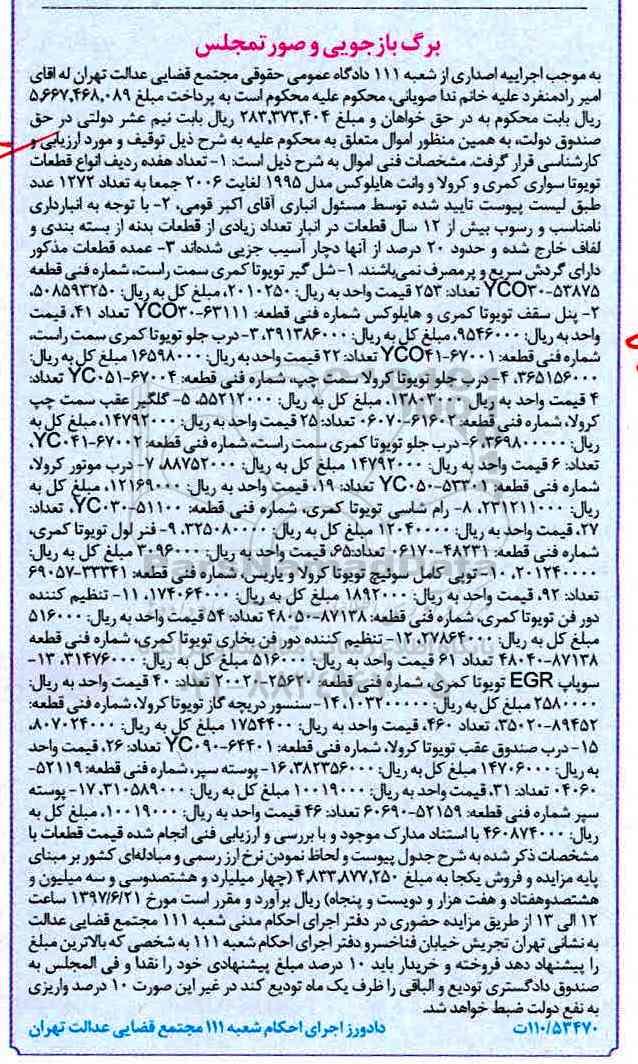 برگ بازجویی و صورتمجلس
به موجب اجراییه اصداری از شعبه ۱۱۱ دادگاه عمومی حقوقی مجتمع قضایی عدالت تهران له اقای
امیر رادمنفرد علیه خانم ندا صویانی، محکوم علیه محکوم است به پرداخت مبلغ ۵,۶۶۷,۴۶۸,۰۸۹
ریال بابت محکوم به در حق خواهان و مبلغ ۲۸۳,۳۷۳,۴۰۴ ریال بابت نیم عشر دولتی در حق
صندوق دولت، به همین منظور اموال متعلق به محکوم علیه به شرح ذیل توقیف و مورد ارزیابی و
کارشناسی قرار گرفت. مشخصات فنی اموال به شرح ذیل است: ۱- تعداد هفده ردیف انواع قطعات
تویوتا سواری کمری و کرولا و وانت هایلوکس مدل ۱۹۹۵ لغایت ۲۰۰۶ جمعا به تعداد ۱۲۷۲ عدد
طبق لیست پیوست تایید شده توسط مسئول انباری آقای اکبر قومی، ۲- با توجه به انبارداری
نامناسب و رسوب بیش از ۱۲ سال قطعات در انبار تعداد زیادی از قطعات بدنه از بسته بندی و
لفاف خارج شده و حدود ۲۰ درصد از آنها دچار آسیب جزیی شده‌اند ۳- عمده قطعات مذکور
دارای گردش سریع و پرمصرف نمی‌باشند. ۱- شل گیر تویوتا کمری سمت راست، شماره فنی قطعه
YCO۳۰-۵۳۸۷۵ تعداد: ۲۵۳ قیمت واحد به ریال: ۲۰۱۰۲۵۰، مبلغ کل به ریال: ۵۰۸۵۹۳۲۵۰،
۲- پنل سقف تویوتا کمری و هایلوکس شماره فنی قطعه: YCO۳۰-۶۳۱۱۱ تعداد ۴۱، قیمت
واحد به ریال: ۹۵۴۶۰۰۰، مبلغ کل به ریال: ۳۹۱۳۸۶۰۰۰، ۳- درب جلو تویوتا کمری سمت راست،
شماره فنی قطعه: YCO۴۱-۶۷۰۰۱ تعداد: ۲۲ قیمت واحد به ریال: ۱۶۵۹۸۰۰۰ مبلغ کل به ریال:
۳۶۵۱۵۶۰۰۰، ۴- درب جلو تویوتا کرولا سمت چپ، شماره فنی قطعه: YC۰۵۱-۶۷۰۰۴ تعداد:
۴ قیمت واحد به ریال ۱۳۸۰۳۰۰۰، مبلغ کل به ریال: ۵۵۲۱۲۰۰۰، ۵- گلگیر عقب سمت چپ
کرولا، شماره فنی قطعه: ۶۱۶۰۲-۰۶۰۷۰ تعداد: ۲۵ قیمت واحد به ریال: ۱۴۷۹۲۰۰۰، مبلغ کل به
ریال: ۳۶۹۸۰۰۰۰۰، ۶- درب جلو تویوتا کمری سمت راست، شماره فنی قطعه: YC۰۴۱-۶۷۰۰۲،
تعداد: ۶ قیمت واحد به ریال: ۱۴۷۹۲۰۰۰ مبلغ کل به ریال: ۸۸۷۵۲۰۰۰، ۷- درب موتور کرولا،
شماره فنی قطعه: YC۰۵۰-۵۳۳۰۱ تعداد: ۱۹، قیمت واحد به ریال: ۱۲۱۶۹۰۰۰، مبلغ کل به
ریال: ۲۳۱۲۱۱۰۰۰، ۸- رام شاسی تویوتا کمری، شماره فنی قطعه: YC۰۳۰-۵۱۱۰۰، تعداد:
۲۷، قیمت واحد به ریال: ۱۲۰۴۰۰۰۰ مبلغ کل به ریال: ۳۲۵۰۸۰۰۰۰، ۹- فنر لول تویوتا کمری،
شماره فنی قطعه: ۴۸۲۳۱-۰۶۱۷۰ تعداد:۶۵، قیمت واحد به ریال: ۳۰۹۶۰۰۰ مبلغ کل به ریال:
۲۰۱۲۴۰۰۰۰، ۱۰- توپی کامل سوئیچ تویوتا کرولا و یاریس، شماره فنی قطعه: ۳۳۳۴۱-۶۹۰۵۷
تعداد: ۹۲، قیمت واحد به ریال: ۱۸۹۲۰۰۰ مبلغ کل به ریال: ۱۷۴۰۶۴۰۰۰، ۱۱- تنظیم کننده
دور فن تویوتا کمری، شماره فنی قطعه: ۸۷۱۳۸-۴۸۰۵۰ تعداد: ۵۴ قیمت واحد به ریال: ۵۱۶۰۰۰
مبلغ کل به ریال: ۲۷۸۶۴۰۰۰، ۱۲- تنظیم کننده دور فن بخاری تویوتا کمری، شماره فنی قطعه
۸۷۱۳۸-۴۸۰۴۰ تعداد ۶۱ قیمت واحد به ریال: ۵۱۶۰۰۰ مبلغ کل به ریال: ۳۱۴۷۶۰۰۰، ۱۳-
سوپاپ EGR تویوتا کمری، شماره فنی قطعه: ۲۵۶۲۰-۲۰۰۲۰ تعداد: ۴۰ قیمت واحد به ریال:
۲۵۸۰۰۰۰ مبلغ کل به ریال: ۱۰۳۲۰۰۰۰۰، ۱۴- سنسور دریچه گاز تویوتا کرولا، شماره فنی قطعه:
۸۹۴۵۲-۳۵۰۲۰، تعداد ۴۶۰، قیمت واحد به ریال: ۱۷۵۴۴۰۰ مبلغ کل به ریال: ۸۰۷۰۲۴۰۰۰،
۱۵- درب صندوق عقب تویوتا کرولا، شماره فنی قطعه: YC۰۹۰-۶۴۴۰۱ تعداد: ۲۶، قیمت واحد
به ریال: ۱۴۷۰۶۰۰۰ مبلغ کل به ریال: ۳۸۲۳۵۶۰۰۰، ۱۶- پوسته سپر، شماره فنی قطعه: ۵۲۱۱۹-
۰۴۰۶۰ تعداد: ۳۱، قیمت واحد به ریال: ۱۰۰۱۹۰۰۰ مبلغ کل به ریال: ۳۱۰۵۸۹۰۰۰، ۱۷- پوسته
سپر شماره فنی قطعه: ۵۲۱۵۹-۶۰۶۹۰ تعداد: ۴۶ قیمت واحد به ریال: ۱۰۰۱۹۰۰۰، مبلغ کل به
ریال: ۴۶۰۸۷۴۰۰۰ با استناد مدارک موجود و با بررسی و ارزیابی فنی انجام شده قیمت قطعات با
مشخصات ذکر شده به شرح جدول پیوست و لحاظ نمودن نرخ ارز رسمی و مبادله‌ای کشور بر مبنای
پایه مزایده و فروش یکجا به مبلغ ۴,۸۳۳,۸۷۷,۲۵۰ (چهار میلیارد و هشتصدوسی و سه میلیون و
هشتصدوهفتاد و هفت هزار و دویست و پنجاه) ریال برآورد و مقرر است مورخ ۱۳۹۷/۶/۲۱ ساعت
۱۲ الی ۱۳ از طریق مزایده حضوری در دفتر اجرای احکام مدنی شعبه ۱۱۱ مجتمع قضایی عدالت
به نشانی تهران تجریش خیابان فناخسرو دفتر اجرای احکام شعبه ۱۱۱ به شخصی که بالاترین مبلغ
را پیشنهاد دهد فروخته و خریدار باید ۱۰ درصد مبلغ پیشنهادی خود را نقدا و فی المجلس به
صندوق دادگستری تودیع و الباقی را ظرف یک ماه تودیع کند در غیر این صورت ۱۰ درصد واریزی
به نفع دولت ضبط خواهد شد.
۱۱۰/۵۳۴۷۰ت دادورز اجرای احکام شعبه ۱۱۱ مجتمع قضایی عدالت تهران